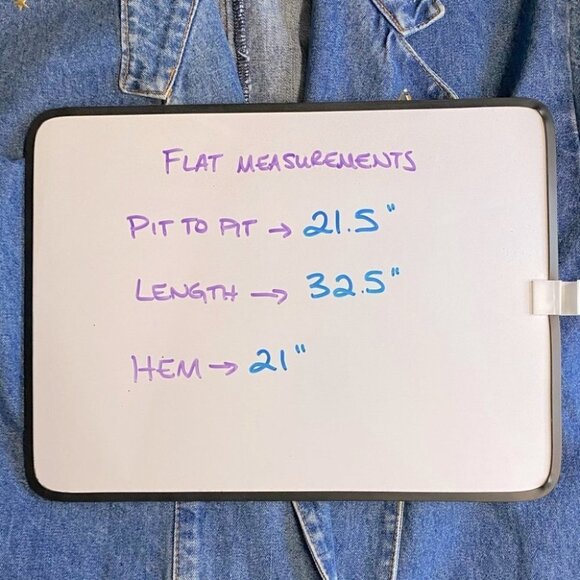 FLAT MEASUREMENTS
PIT TO PIT → 21.5"
LENGTH → 32.5"
HEM → 21"